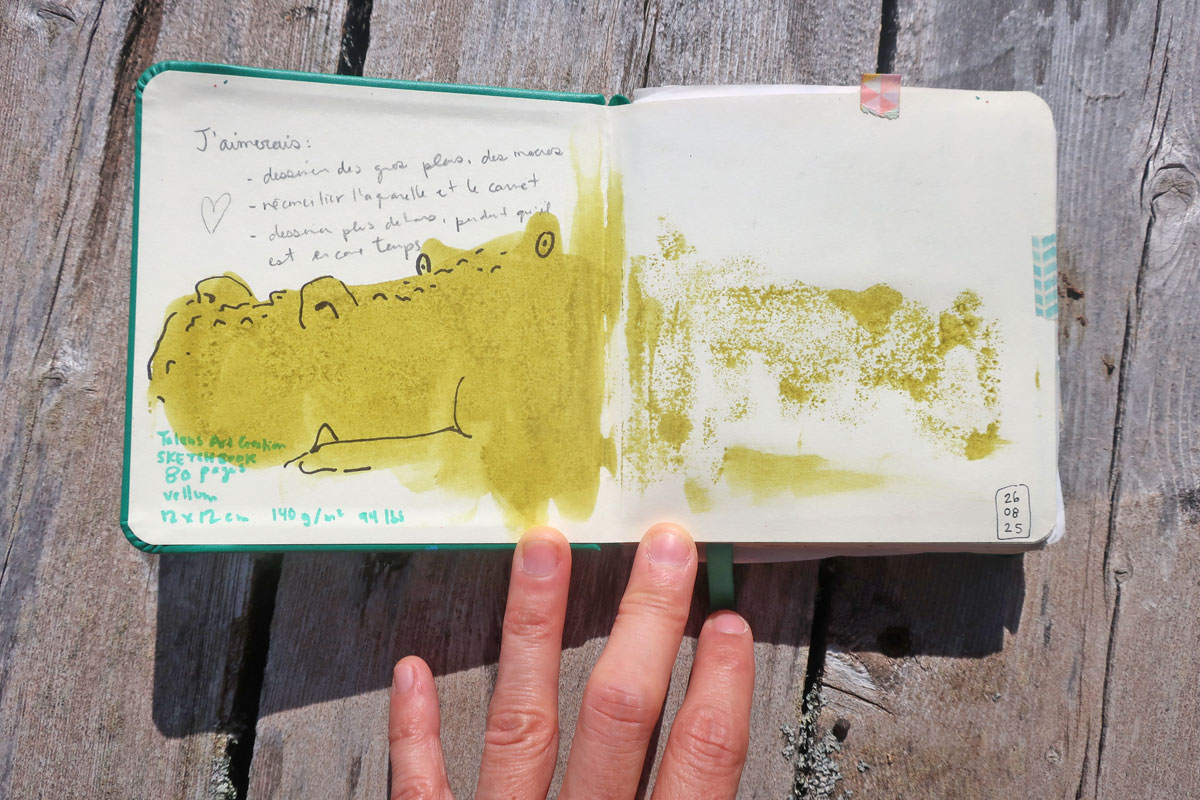 J'aimerais:
- dessiner des gros plans, des macros
- réconcilier l'aquarelle et le carnet
- dessiner plus dehors, pendant qu'il
est encore temps
Talens Art Creation
SKETCHBOOK
80 pages
vellum
12 x 12 cm 140 g/m² 94 lbs
26
08
25